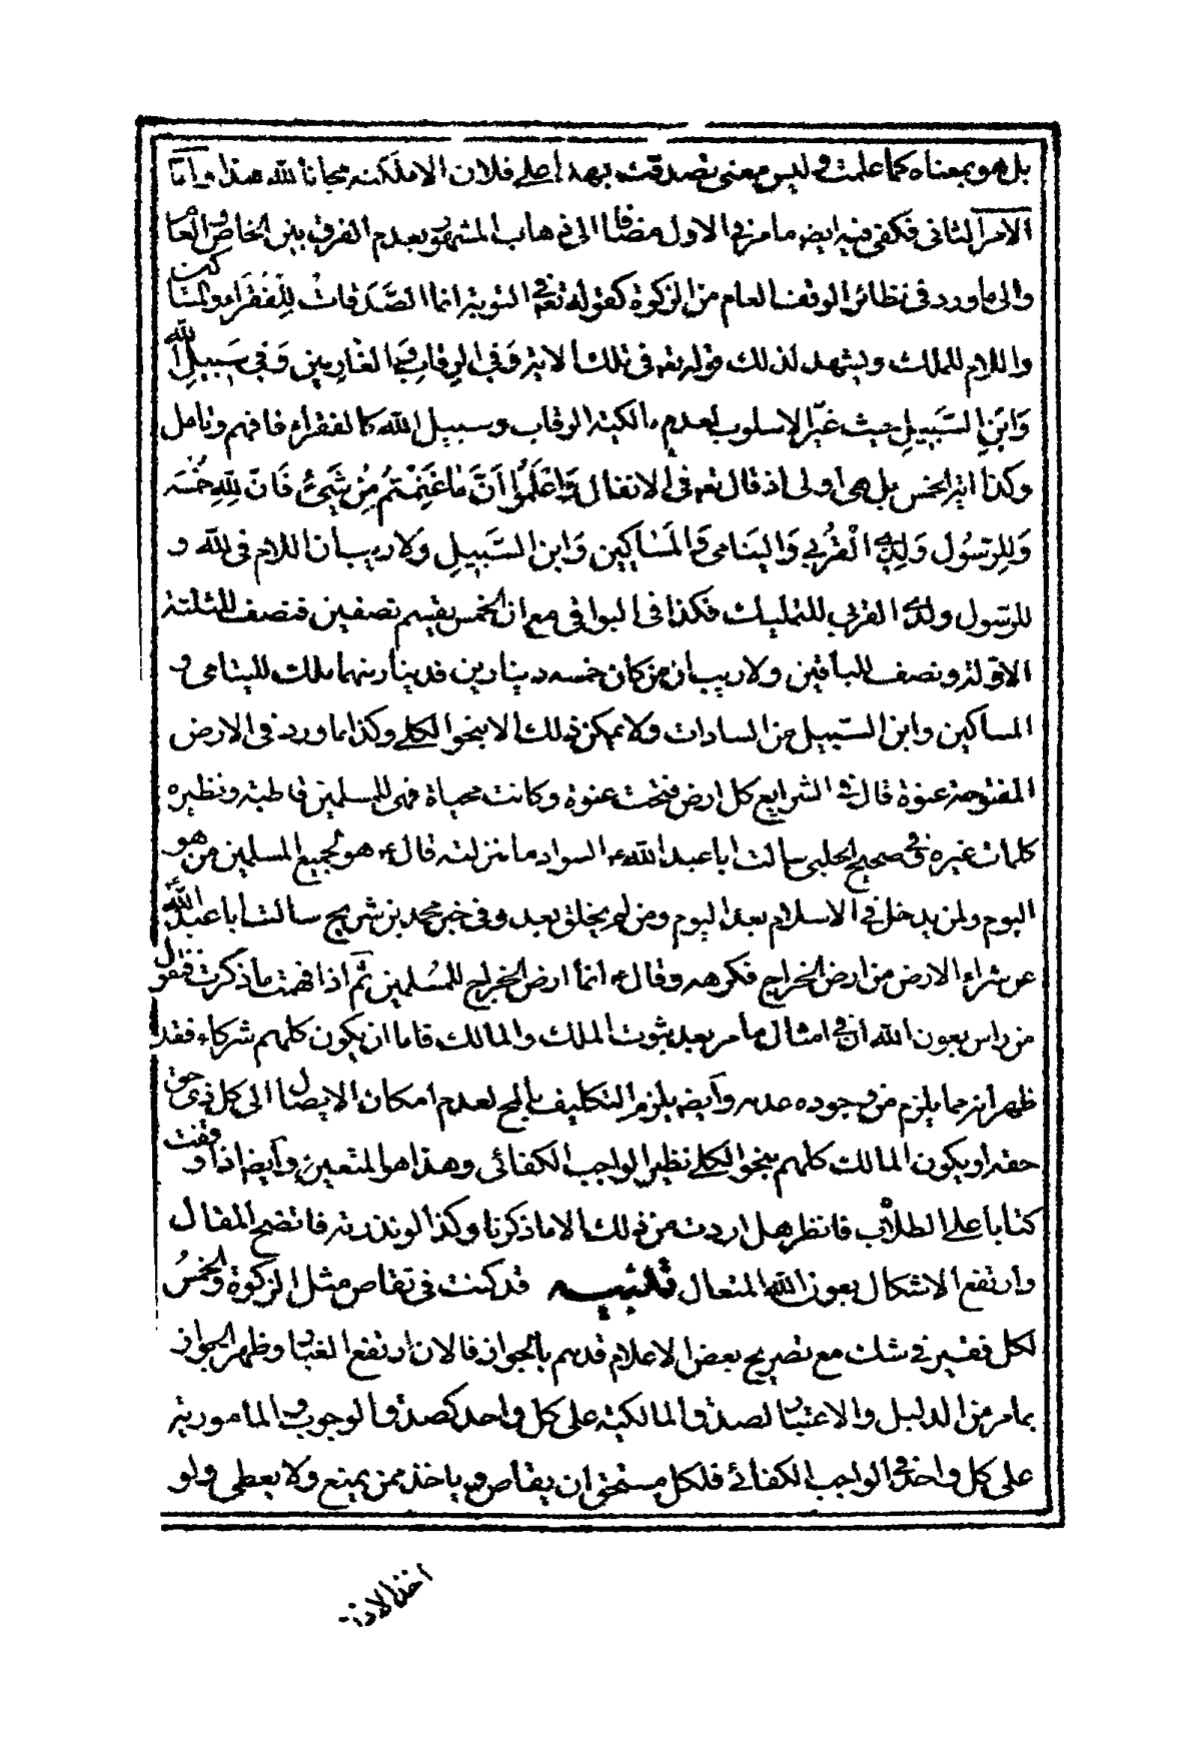 بل هو بمعناه كما علمت وليس معنى تصدقت بهذا على فلان الا ملكته مجانا لله هذا واما
الامر الثانى فكفى فيه ايضه ما مر فى الاول مضافا الى ذهاب المشهور بعدم الفرق بين الخاص والعام
والى ما ورد فى نظائر الوقف العام من الزكوة كقوله تعه فى التوبة انما الصَّدَقاتُ لِلْفُقَراءِ والمَساكين
واللام للملك ويشهد لذلك قوله تعه فى تلك الاية وَفى الرِقابِ وَالغارِمينَ وَفى سَبيلِ اللهِ
وَابنِ السَّبيلِ حيث غيّر الاسلوب لعدم مالكية الرقاب وسبيل الله كالفقراء فافهم وتامل
وكذا اية الخمس بل هى اولى اذ قال تعه فى الانفال وَاعْلَمُوا اَنَّ ما غَنِمْتُمْ مِنْ شَيْئٍ فَانَّ لِلّٰهِ خُمُسَه
وَلِلرسُول وَلِذِى الْقُرْبى وَاليتامى وَالمَساكينِ وَابنِ السَّبيلِ ولا ريب ان اللام فى لله و
للرسول ولذى القربى للتمليك فكذا فى البواقى مع ان الخمس يقسم نصفين فنصف للثلثة
الاولة ونصف للباقين ولا ريب ان من كان خمسه دينارين فدينار منهما ملك لليتامى و
المساكين وابن السبيل من السادات ولا يمكن ذلك الا بنحو الكلى وكذا ما ورد فى الارض
المفتوحة عنوة قال فى الشرايع كل ارض فتحت عنوة وكانت محياة فهى للمسلمين قاطبة ونظيره
كلمات غيره وفى صحيح الحلبى سالت ابا عبد الله ع السواد ما منزلته قال ع هو لجميع المسلمين من هو
اليوم ولمن يدخل فى الاسلام بعد اليوم ومن لم يخلق بعد وفى خبر محمد بن شريح سالت ابا عبد الله
عن شراء الارض من ارض الخراج فكرهه وقال ع انما ارض الخراج للمسلمين ثم اذا فهمت ما ذكرت فنقول
من راس بعون الله ان فى امثال ما مر بعد ثبوت الملك والمالك فاما ان يكون كلهم شركاء فقد
ظهر انه مما يلزم من وجوده عدمه وايضه يلزم التكليف بالمحال لعدم امكان الايصال الى كل ذى حق
حقه او يكون المالك كلهم بنحو الكلى نظير الواجب الكفائى وهذا هو المتعين وايضه اذا وقفت
كتابا على الطلاب فانظر هل اردت من ذلك الا ما ذكرنا وكذا لو نذرته فاتضح المقال
وارتفع الاشكال بعون الله المتعال تنبيه قد كنت فى تقاص مثل الزكوة والخمسُ
لكل فقير فى شك مع تصريح بعض الاعلام قدهم بالجواز فالان ارتفع الغبار وظهر الجواز
بما مر من الدليل والاعتبار لصدق المالكية على كل واحد كصدق الوجوب والمامورية
على كل واحد فى الواجب الكفائى فلكل مستحق ان يقاص وياخذ ممن يمنع ولا يعطى ولو
اخذ الاذن